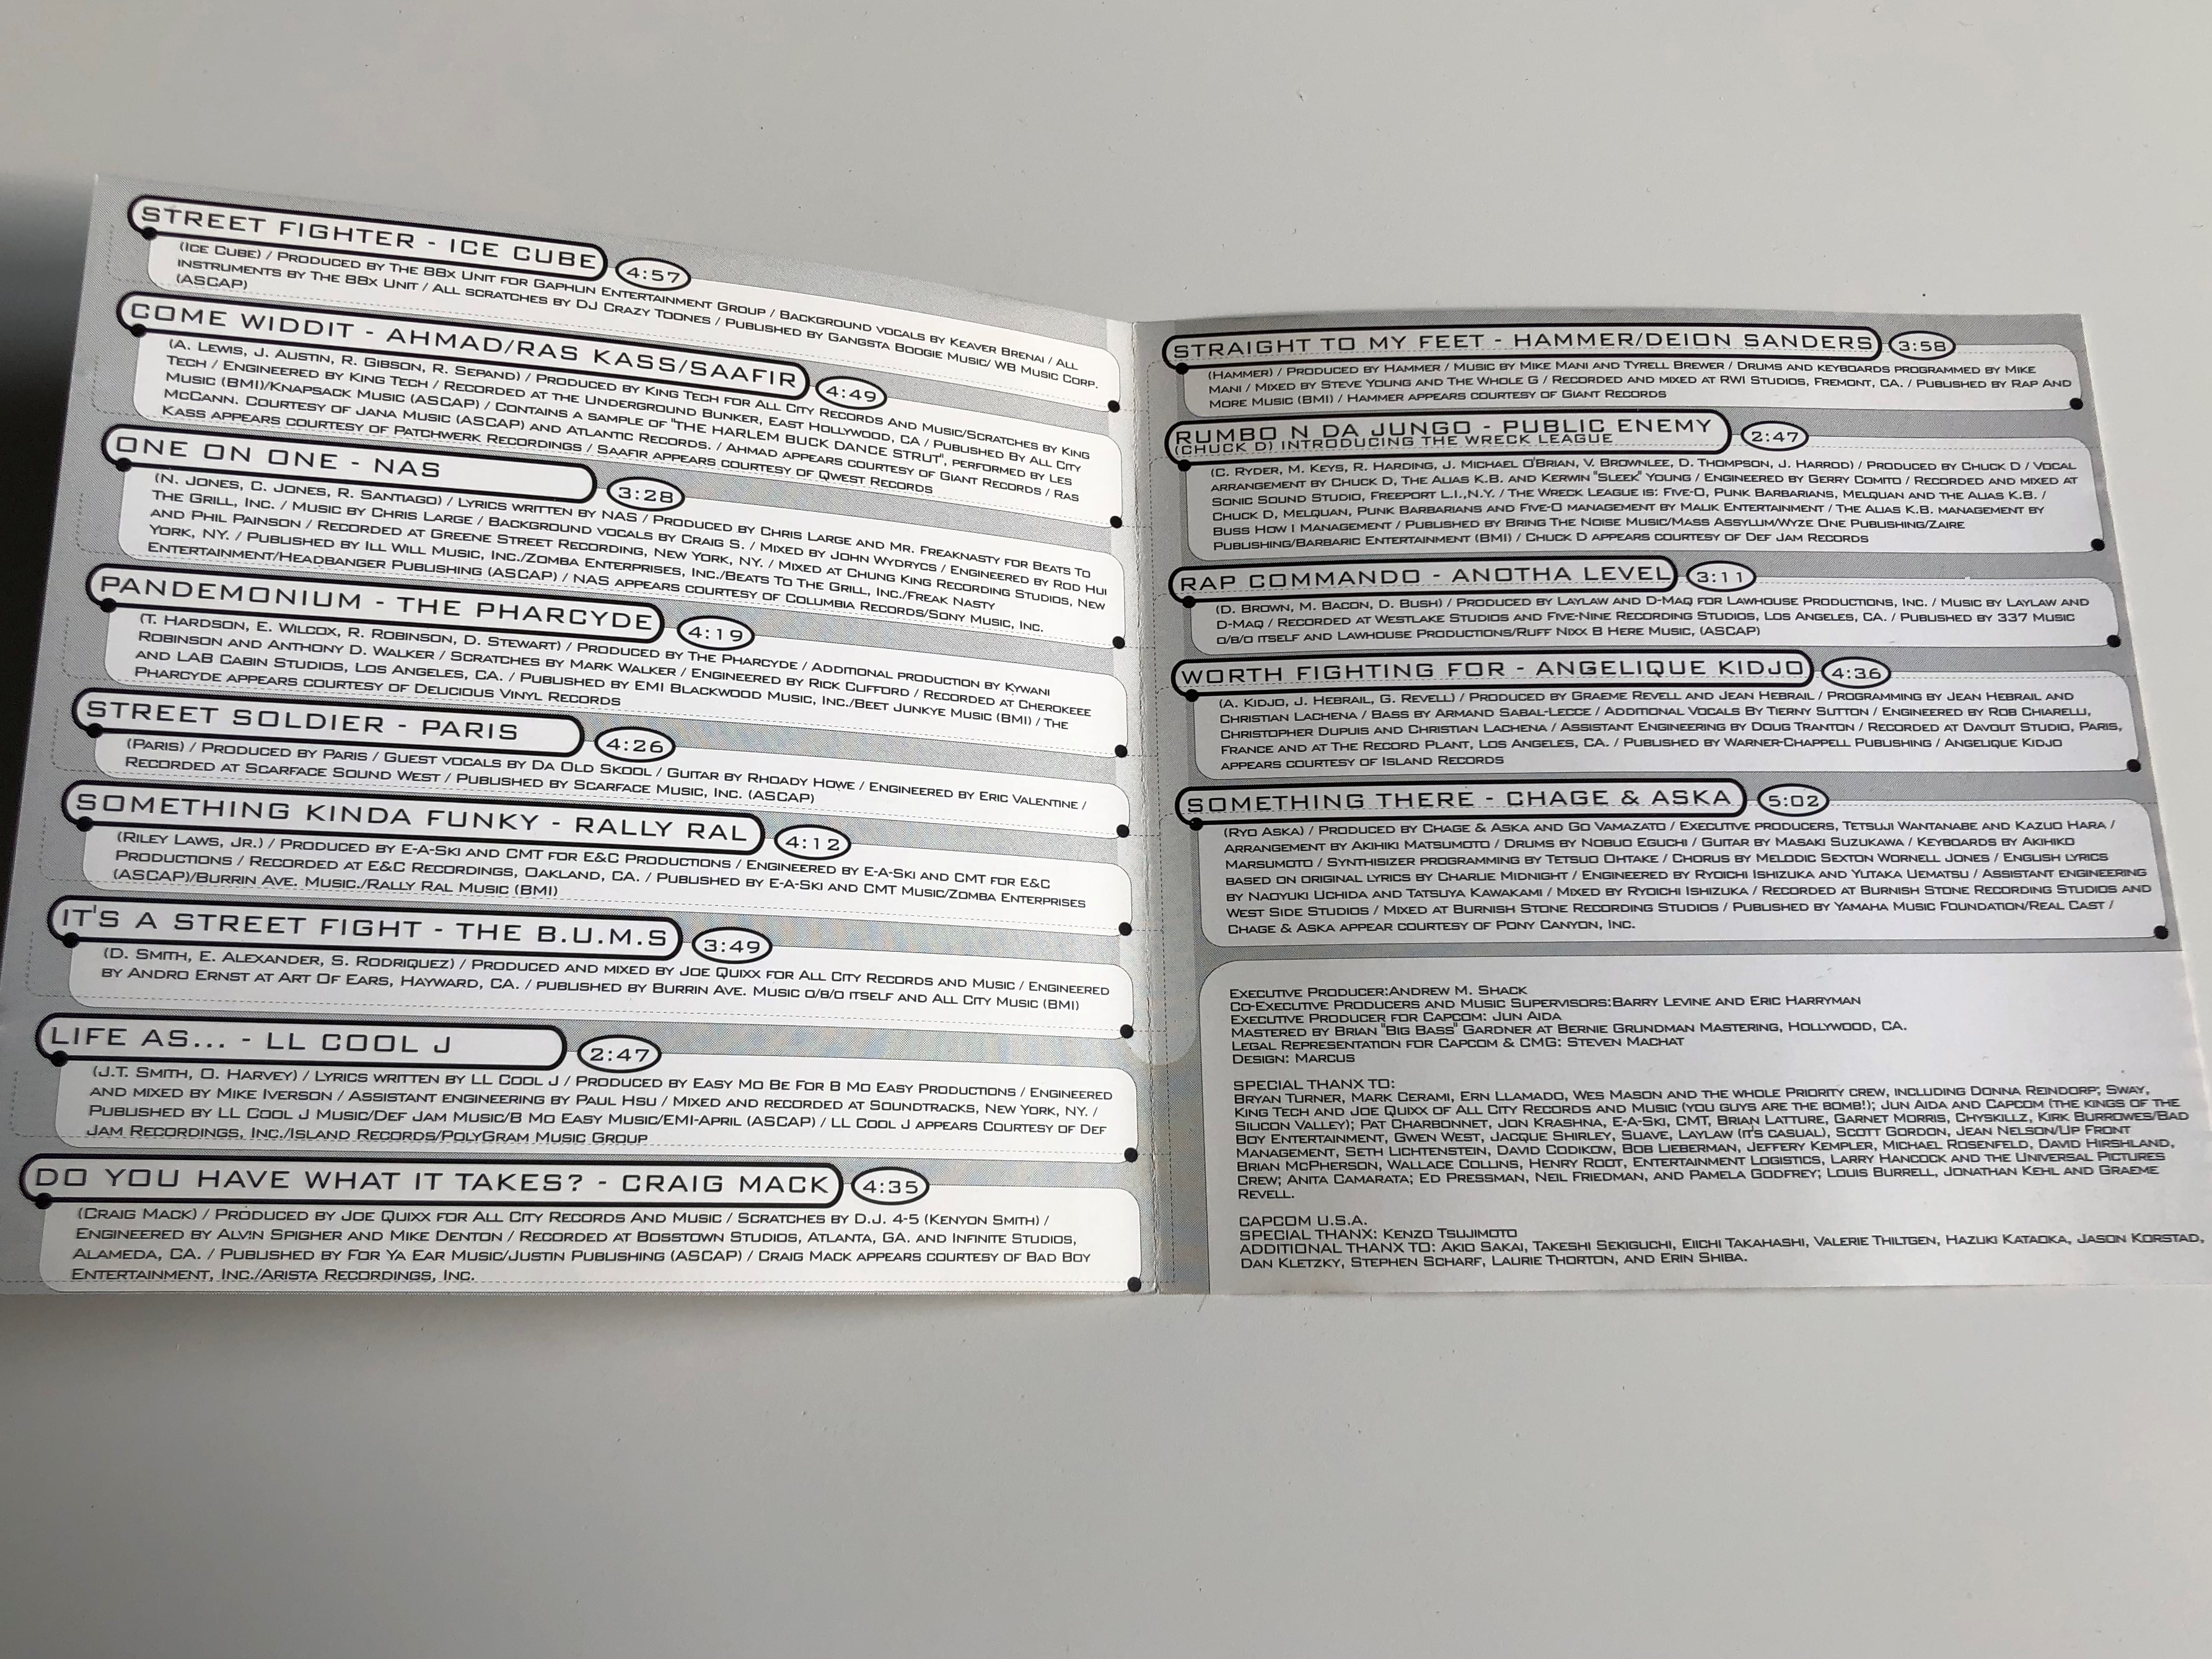 STREET FIGHTER - ICE CUBE 4:57
(Ice Cube) / Produced by The 88x Unit for Gaphlin Entertainment Group / Background vocals by Keaver Brenai / All
instruments by The 88x Unit / All scratches by DJ Crazy Toones / Published by Gangsta Boogie Music/ WB Music Corp.
(ASCAP)
COME WIDDIT - AHMAD/RAS KASS/SAAFIR 4:49
(A. Lewis, J. Austin, R. Gibson, R. Sepand) / Produced by King Tech for All City Records and Music/Scratches by King
Tech / Engineered by King Tech / Recorded at the Underground Bunker, East Hollywood, CA / Published by All City
Music (BMI)/Knapsack Music (ASCAP) / Contains a sample of "THE HARLEM BUCK DANCE STRUT", performed by Les
McCann. Courtesy of Jana Music (ASCAP) and Atlantic Records. / Ahmad appears courtesy of Giant Records / Ras
Kass appears courtesy of Patchwerk Recordings / Saafir appears courtesy of Qwest Records
ONE ON ONE - NAS 3:28
(N. Jones, C. Jones, R. Santiago) / Lyrics written by Nas / Produced by Chris Large and Mr. Freaknasty for Beats To
The Grill, Inc. / Music by Chris Large / Background vocals by Craig S. / Mixed by John Wydrycs / Engineered by Rod Hui
and Phil Painson / Recorded at Greene Street Recording, New York, NY. / Mixed at Chung King Recording Studios, New
York, NY. / Published by Ill Will Music, Inc./Zomba Enterprises, Inc./Beats To The Grill, Inc./Freak Nasty
Entertainment/Headbanger Publishing (ASCAP) / NAS appears courtesy of Columbia Records/Sony Music, Inc.
PANDEMONIUM - THE PHARCYDE 4:19
(T. Hardson, E. Wilcox, R. Robinson, D. Stewart) / Produced by The Pharcyde / Additional production by Kywani
Robinson and Anthony D. Walker / Scratches by Mark Walker / Engineered by Rick Clifford / Recorded at Cherokeee
and LAB Cabin Studios, Los Angeles, CA. / Published by EMI Blackwood Music, Inc./Beet Junkye Music (BMI) / The
Pharcyde appears courtesy of Delicious Vinyl Records
STREET SOLDIER - PARIS 4:26
(Paris) / Produced by Paris / Guest vocals by Da Old Skool / Guitar by Rhoady Howe / Engineered by Eric Valentine /
Recorded at Scarface Sound West / Published by Scarface Music, Inc. (ASCAP)
SOMETHING KINDA FUNKY - RALLY RAL 4:12
(Riley Laws, Jr.) / Produced by E-A-Ski and CMT for E&C Productions / Engineered by E-A-Ski and CMT for E&C
Productions / Recorded at E&C Recordings, Oakland, CA. / Published by E-A-Ski and CMT Music/Zomba Enterprises
(ASCAP)/Burrin Ave. Music./Rally Ral Music (BMI)
IT'S A STREET FIGHT - THE B.U.M.S 3:49
(D. Smith, E. Alexander, S. Rodriquez) / Produced and mixed by Joe Quixx for All City Records and Music / Engineered
by Andro Ernst at Art Of Ears, Hayward, CA. / published by Burrin Ave. Music o/b/o itself and All City Music (BMI)
LIFE AS... - LL COOL J 2:47
(J.T. Smith, O. Harvey) / Lyrics written by LL Cool J / Produced by Easy Mo Be For B Mo Easy Productions / Engineered
and mixed by Mike Iverson / Assistant engineering by Paul Hsu / Mixed and recorded at Soundtracks, New York, NY. /
Published by LL Cool J Music/Def Jam Music/B Mo Easy Music/EMI-April (ASCAP) / LL Cool J appears Courtesy of Def
Jam Recordings, Inc./Island Records/PolyGram Music Group
DO YOU HAVE WHAT IT TAKES? - CRAIG MACK 4:35
(Craig Mack) / Produced by Joe Quixx for All City Records And Music / Scratches by D.J. 4-5 (Kenyon Smith) /
Engineered by Alvin Spigher and Mike Denton / Recorded at Bosstown Studios, Atlanta, GA. and Infinite Studios,
Alameda, CA. / Published by For Ya Ear Music/Justin Publishing (ASCAP) / Craig Mack appears courtesy of Bad Boy
Entertainment, Inc./Arista Recordings, Inc.
STRAIGHT TO MY FEET - HAMMER/DEION SANDERS 3:58
(Hammer) / Produced by Hammer / Music by Mike Mani and Tyrell Brewer / Drums and keyboards programmed by Mike
Mani / Mixed by Steve Young and The Whole G / Recorded and mixed at RWI Studios, Fremont, CA. / Published by Rap And
More Music (BMI) / Hammer appears courtesy of Giant Records
RUMBO N DA JUNGO - PUBLIC ENEMY 2:47
(CHUCK D) INTRODUCING THE WRECK LEAGUE
(C. Ryder, M. Keys, R. Harding, J. Michael O'Brian, V. Brownlee, D. Thompson, J. Harrod) / Produced by Chuck D / Vocal
arrangement by Chuck D, The Alias K.B. and Kerwin "Sleek" Young / Engineered by Gerry Comito / Recorded and mixed at
Sonic Sound Studio, Freeport L.I.,N.Y. / The Wreck League is: Five-O, Punk Barbarians, Melquan and the Alias K.B. /
Chuck D, Melquan, Punk Barbarians and Five-O management by Malik Entertainment / The Alias K.B. management by
Buss How I Management / Published by Bring The Noise Music/Mass Assylum/Wyze One Publishing/Zaire
Publishing/Barbaric Entertainment (BMI) / Chuck D appears courtesy of Def Jam Records
RAP COMMANDO - ANOTHA LEVEL 3:11
(D. Brown, M. Bacon, D. Bush) / Produced by Laylaw and D-Maq for Lawhouse Productions, Inc. / Music by Laylaw and
D-Maq / Recorded at Westlake Studios and Five-Nine Recording Studios, Los Angeles, CA. / Published by 337 Music
o/b/o itself and Lawhouse Productions/Ruff Nixx B Here Music, (ASCAP)
WORTH FIGHTING FOR - ANGELIQUE KIDJO 4:36
(A. Kidjo, J. Hebrail, G. Revell) / Produced by Graeme Revell and Jean Hebrail / Programming by Jean Hebrail and
Christian Lachena / Bass by Armand Sabal-Lecce / Additional Vocals By Tierny Sutton / Engineered by Rob Chiarelli,
Christopher Dupuis and Christian Lachena / Assistant Engineering by Doug Tranton / Recorded at Davout Studio, Paris,
France and at The Record Plant, Los Angeles, CA. / Published by Warner-Chappell Publishing / Angelique Kidjo
appears courtesy of Island Records
SOMETHING THERE - CHAGE & ASKA 5:02
(Ryo Aska) / Produced by Chage & Aska and Go Vamazato / Executive producers, Tetsuji Wantanabe and Kazuo Hara /
Arrangement by Akihiki Matsumoto / Drums by Nobuo Eguchi / Guitar by Masaki Suzukawa / Keyboards by Akihiko
Marsumoto / Synthisizer programming by Tetsuo Ohtake / Chorus by Melodic Sexton Wornell Jones / English lyrics
based on original lyrics by Charlie Midnight / Engineered by Ryoichi Ishizuka and Yutaka Uematsu / Assistant engineering
by Naoyuki Uchida and Tatsuya Kawakami / Mixed by Ryoichi Ishizuka / Recorded at Burnish Stone Recording Studios and
West Side Studios / Mixed at Burnish Stone Recording Studios / Published by Yamaha Music Foundation/Real Cast /
Chage & Aska appear courtesy of Pony Canyon, Inc.
Executive Producer:Andrew M. Shack
Co-Executive Producers and Music Supervisors:Barry Levine and Eric Harryman
Executive Producer for Capcom: Jun Aida
Mastered by Brian "Big Bass" Gardner at Bernie Grundman Mastering, Hollywood, CA.
Legal Representation for Capcom & CMG: Steven Machat
Design: Marcus
SPECIAL THANX TO:
Bryan Turner, Mark Cerami, Ern Llamado, Wes Mason and the whole Priority crew, including Donna Reindorp, Sway,
King Tech and Joe Quixx of All City Records and Music (you guys are the bomb!); Jun Aida and Capcom (the kings of the
Silicon Valley); Pat Charbonnet, Jon Krashna, E-A-Ski, CMT, Brian Latture, Garnet Morris, Chyskillz, Kirk Burrowes/Bad
Boy Entertainment, Gwen West, Jacque Shirley, Suave, Laylaw (it's casual), Scott Gordon, Jean Nelson/Up Front
Management, Seth Lichtenstein, David Codikow, Bob Lieberman, Jeffery Kempler, Michael Rosenfeld, David Hirshland,
Brian McPherson, Wallace Collins, Henry Root, Entertainment Logistics, Larry Hancock and the Universal Pictures
Crew; Anita Camarata; Ed Pressman, Neil Friedman, and Pamela Godfrey; Louis Burrell, Jonathan Kehl and Graeme
Revell.
CAPCOM U.S.A.
SPECIAL THANX: Kenzo Tsujimoto
ADDITIONAL THANX TO: Akio Sakai, Takeshi Sekiguchi, Eiichi Takahashi, Valerie Thiltgen, Hazuki Kataoka, Jason Korstad,
Dan Kletzky, Stephen Scharf, Laurie Thorton, and Erin Shiba.